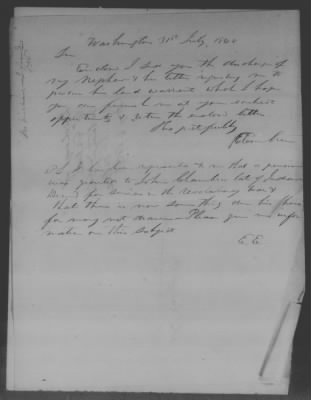 Washington 31st July, 1844
Sir
Enclosed I send you the discharge of
my Nephew & his letter requesting me to
procure his land warrant which I hope
you will forward to me at your earliest
opportunity & return the enclosed letter
Respectfully
P.S. It has been represented to me that a pension
was granted to John Chambers late of Indiana
for services in the Revolutionary War &
that there is now something due his heirs
for many not drawn - Please give me infor
mation on this subject
E. E.